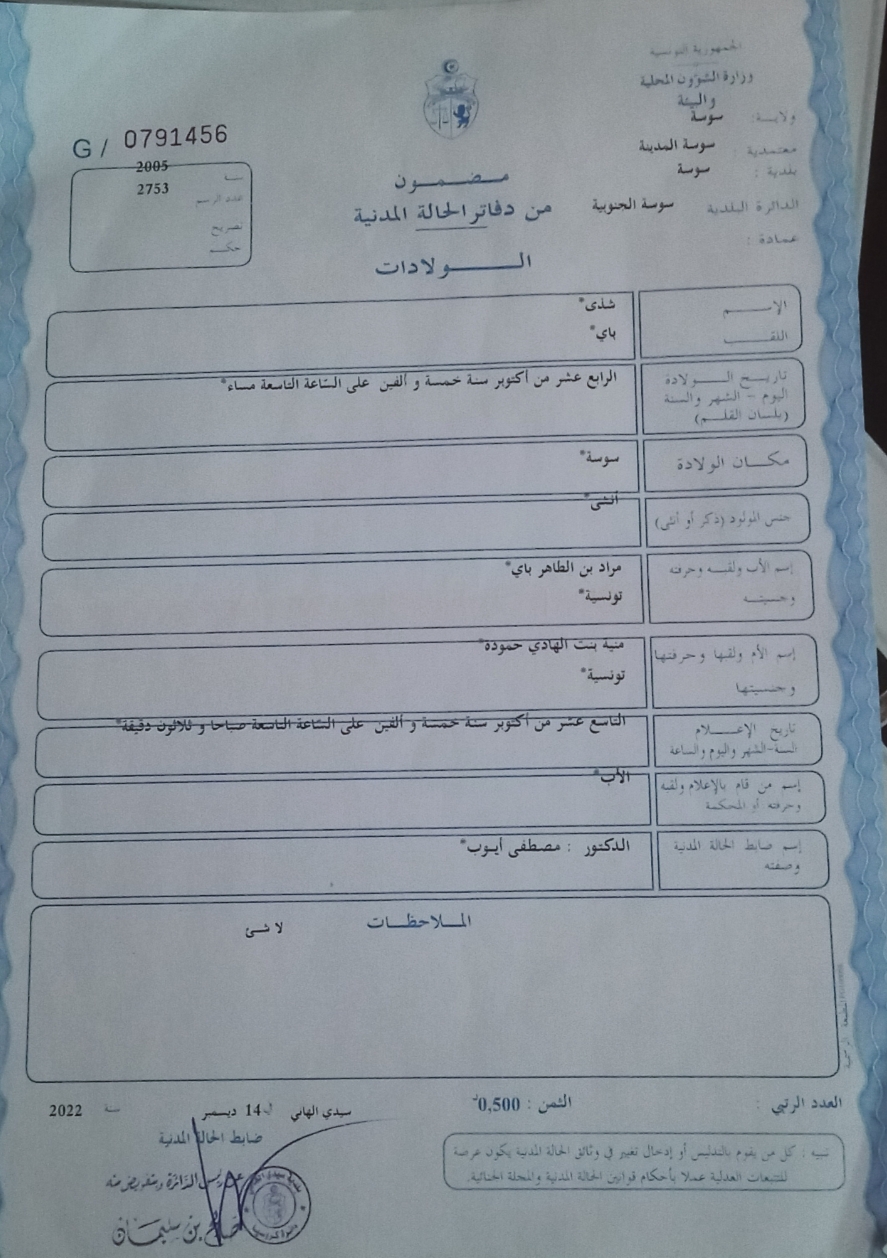 الجمهورية التونسية
وزارة الشؤون المحلية
والبيئة
ولاية : سوسة
معتمدية : سوسة المدينة
بلدية : سوسة
الدائرة البلدية سوسة الجنوبية
عمادة :
G / 0791456
سنة 2005
عدد الرسم 2753
تصريح
حكم
مضمون
من دفاتر الحالة المدنية
الولادات
الإسم شذى*
اللقب باي*
تاريخ الولادة
اليوم - الشهر والسنة
(بلسان القلم)
الرابع عشر من أكتوبر سنة خمسة و ألفين على الساعة التاسعة مساء*
مكان الولادة سوسة*
جنس المولود (ذكر أو أنثى) أنثى*
إسم الأب ولقبه وحرفته مراد بن الطاهر باي*
وجنسيته تونسية*
إسم الأم ولقبها وحرفتها منية بنت الهادي حمودة*
وجنسيتها تونسية*
تاريخ الإعلام
السنة-الشهر واليوم والساعة
التاسع عشر من أكتوبر سنة خمسة و ألفين على الساعة التاسعة صباحا و ثلاثون دقيقة*
إسم من قام بالإعلام ولقبه
وحرفته أو المحكمة
الأب*
إسم ضابط الحالة المدنية
وصفته
الدكتور : مصطفى أيوب*
الملاحظات لا شئ
العدد الرتبي :
الثمن : 0,500د
سيدي الهاني في 14 ديسمبر سنة 2022
ضابط الحالة المدنية
تنبيه : كل من يقوم بالتدليس أو إدخال تغيير في وثائق الحالة المدنية يكون عرضة
للتتبعات العدلية عملا بأحكام قوانين الحالة المدنية والمجلة الجنائية.
بن سليمان
المطبعة الرسمية